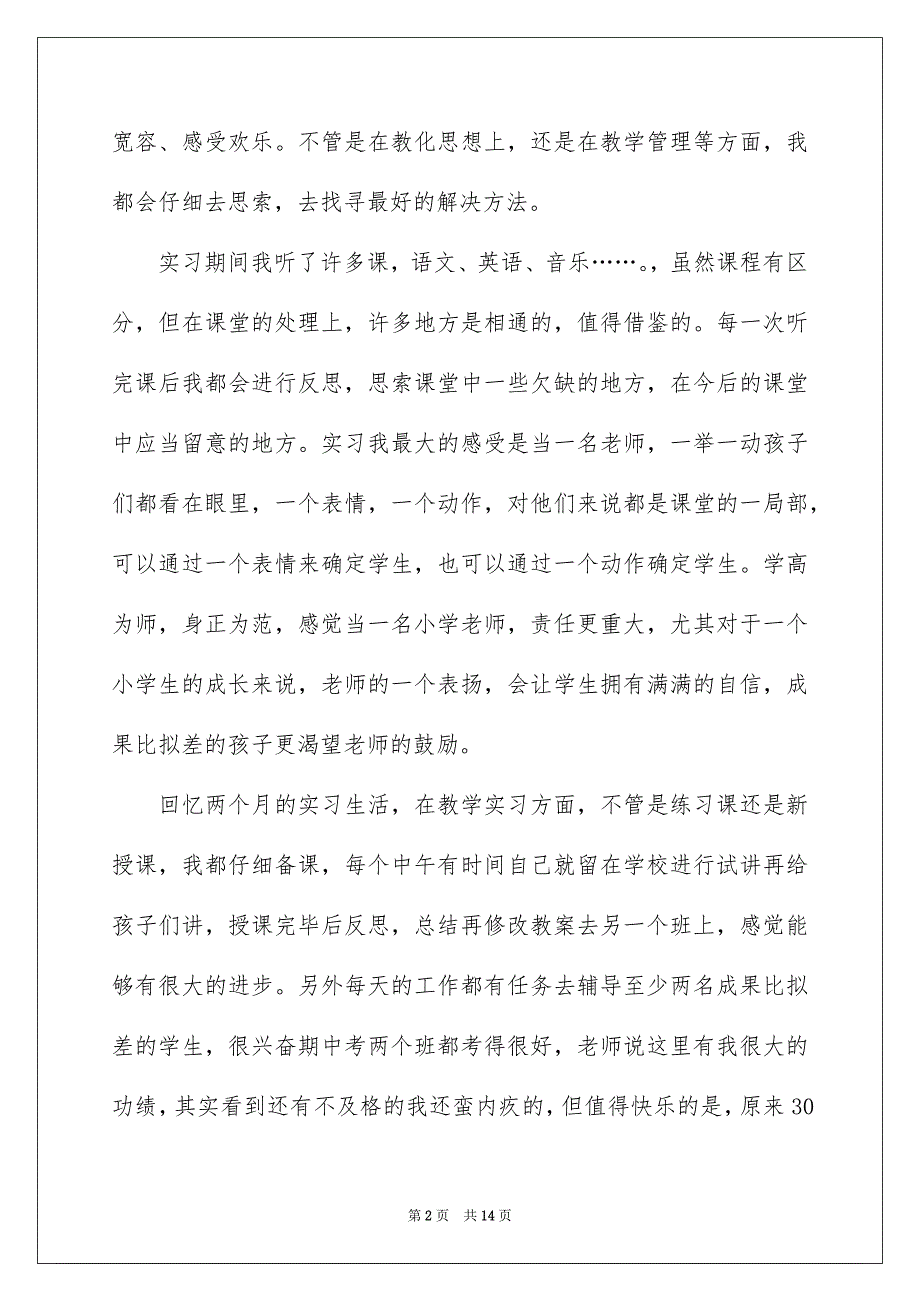 宽容、感受欢乐。不管是在教化思想上，还是在教学管理等方面，我
都会仔细去思索，去找寻最好的解决方法。
实习期间我听了许多课，语文、英语、音乐……。，虽然课程有区
分，但在课堂的处理上，许多地方是相通的，值得借鉴的。每一次听
完课后我都会进行反思，思索课堂中一些欠缺的地方，在今后的课堂
中应当留意的地方。实习我最大的感受是当一名老师，一举一动孩子
们都看在眼里，一个表情，一个动作，对他们来说都是课堂的一局部，
可以通过一个表情来确定学生，也可以通过一个动作确定学生。学高
为师，身正为范，感觉当一名小学老师，责任更重大，尤其对于一个
小学生的成长来说，老师的一个表扬，会让学生拥有满满的自信，成
果比拟差的孩子更渴望老师的鼓励。
回忆两个月的实习生活，在教学实习方面，不管是练习课还是新
授课，我都仔细备课，每个中午有时间自己就留在学校进行试讲再给
孩子们讲，授课完毕后反思，总结再修改教案去另一个班上，感觉能
够有很大的进步。另外每天的工作都有任务去辅导至少两名成果比拟
差的学生，很兴奋期中考两个班都考得很好，老师说这里有我很大的
功绩，其实看到还有不及格的我还蛮内疚的，但值得快乐的是，原来 30
第 2 页 共 14 页